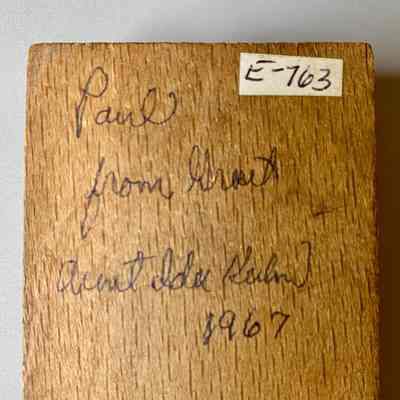 E-763
Paul
from Great
Aunt Ida
1967